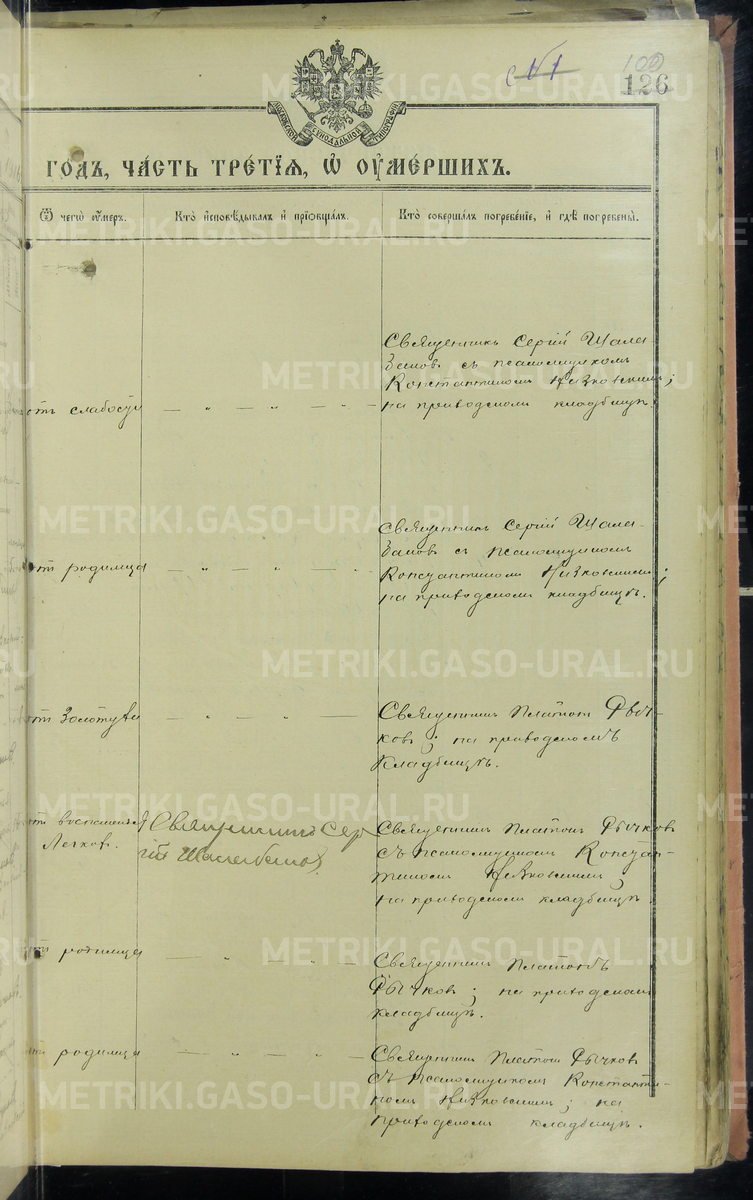 100
126
МОСКОВСКОЙ СѴНОДАЛЬНОЙ ТИПОГРАФІИ
ГОДЪ, ЧАСТЬ ТРЕТІЯ, Ѿ ОУМЕРШИХЪ.
Ѿ чегѡ оумеръ.
Кто исповѣдывалъ и пріобщалъ.
Кто совершалъ погребеніе, и гдѣ погребены.
Священникъ Сергій Шала
бановъ съ псаломщикомъ
Константиномъ
отъ слабости
на приходскомъ кладбищѣ.
Священникъ Сергій Шала-
бановъ съ псаломщикомъ
отъ родимца
Константиномъ
на приходскомъ кладбищѣ.
отъ золотухи
Священникъ Платонъ Рыч-
ковъ; на приходскомъ
кладбищѣ.
отъ воспаленія
Легков.
Священникъ Сер
гій Шалабановъ
Священникъ Платонъ Рычков
съ псаломщикомъ Констан-
тиномъ
на приходскомъ кладбищѣ
отъ родимца
Священникъ Платонъ
Рычковъ; на приходскомъ
кладбищѣ.
отъ родимца
Священникъ Платон Рычковъ
съ псаломщикомъ Константи-
номъ на
приходскомъ кладбищѣ.
METRIKI.GASO-URAL.RU